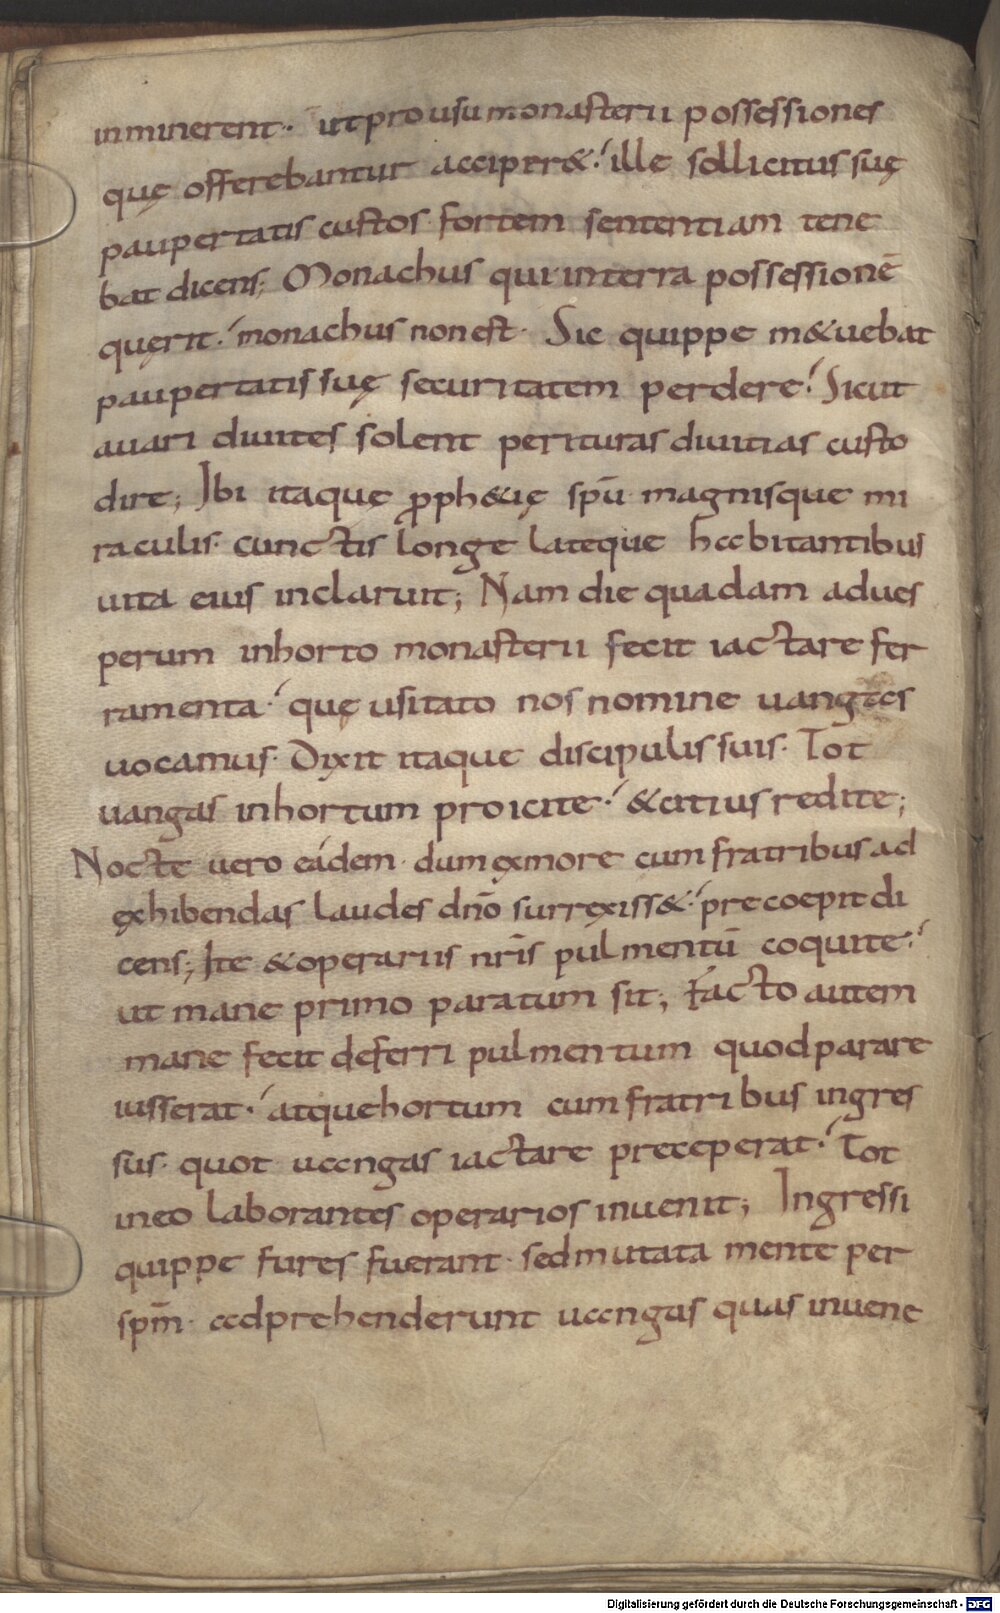 inminerent· ut pro usu monasterii possessiones
quę offerebantur acciper&· ille sollicitus suę
paupertatis custos fortem sententiam tene
bat dicens; Monachus qui in terra possessionē
quęrit· monachus non est· Sic quippe m&uebat
paupertatis suę securitatem perdere· Sicut
auari diuites solent perituras diuitias custo
dire; Ibi itaque ꝓph&ię spū magnisque mi
raculis· cunctis longe lateque habitantibus
uita eius inclaruit; Nam die quadam ad ues
perum in horto monasterii fecit iactare fer
ramenta· quę usitato nos nomine uangas
uocamus· Dixit itaque discipulis suis· Tot
uangas in hortum proicite· & citius redite;
Nocte uero eádem· dum ex more cum fratribus ad
ęxhibendas laudes dn̄o surręxiss&· precoepit di
cens; Ite & operariis nr̄is pulmentū coquite·
ut mane primo paratum sit; Facto autem
mane fecit deferri pulmentum quod parare
iusserat· atque hortum cum fratribus ingres
sus· quot uangas iactare preceperat· Tot
in eo laborantes operarios inuenit; Ingressi
quippe fures fuerant· sed mutata mente per
spm̄· adprehenderunt uangas quas inuene
Digitalisierung gefördert durch die Deutsche Forschungsgemeinschaft - DFG